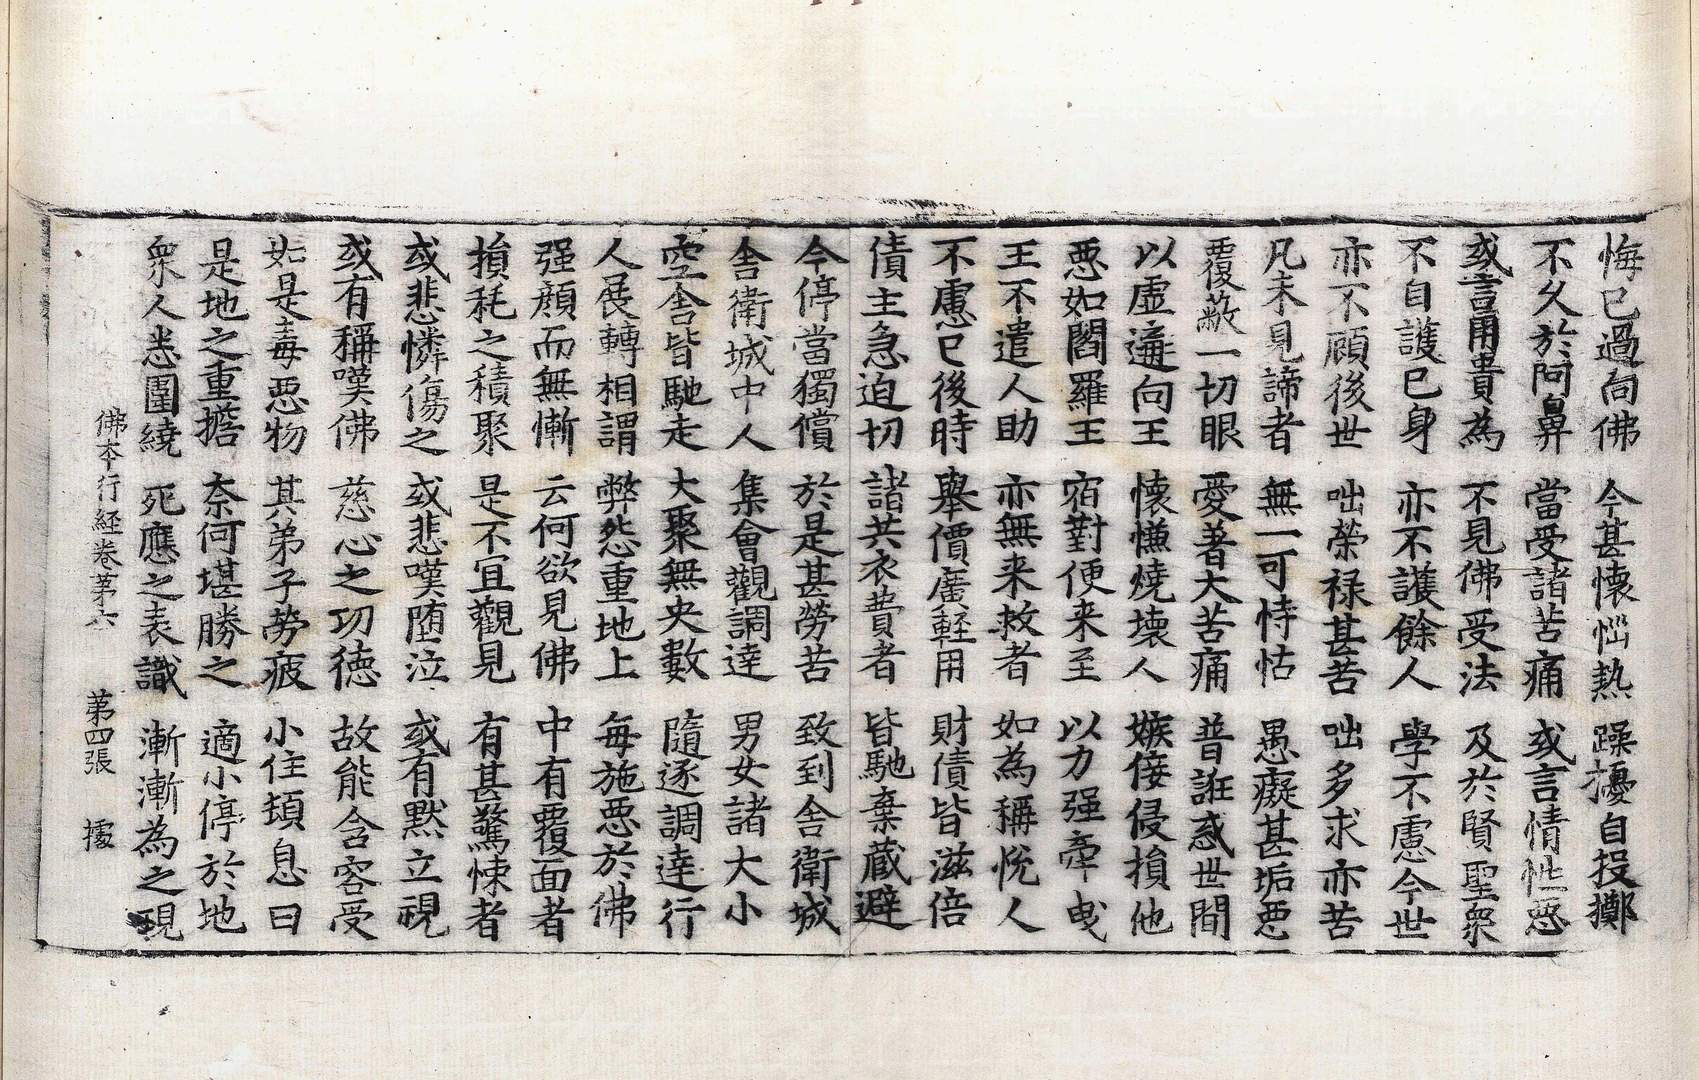 悔已過向佛 今甚懷惱熱 躁擾自投擲
不久於阿鼻 當受諸苦痛 或言情性惡
或言用貴為 不見佛受法 及於賢聖衆
不自護已身 亦不護餘人 學不慮今世
亦不顧後世 咄榮祿甚苦 咄多求亦苦
凡未見諦者 無一可恃怙 愚癡甚垢惡
覆蔽一切眼 愛著大苦痛 普誑惑世間
以虛遍向王 懷慊燒壞人 嫉侫侵損他
惡如閻羅王 宿對便来至 以力强牽曵
王不遣人助 亦無来救者 如為稱悅人
不慮已後時 舉價廣輕用 財債皆滋倍
債主急迫切 諸共衣費者 皆馳棄藏避
今停當獨償 於是甚勞苦 致到舍衛城
舍衛城中人 集會觀調達 男女諸大小
空舍皆馳走 大聚無央數 隨逐調達行
人展轉相謂 弊惡重地上 每施惡於佛
强顔而無慚 云何欲見佛 中有覆面者
損秏之積聚 是不宜觀見 有甚驚悚者
或悲憐傷之 或悲嘆墮泣 或有默立視
或有稱嘆佛 慈心之功德 故能含容受
如是毒惡物 其弟子勞疲 小住頓息曰
是地之重擔 柰何堪勝之 適小停於地
衆人悉圍繞 死應之表識 漸漸為之現
佛本行経卷苐六 苐四張 據